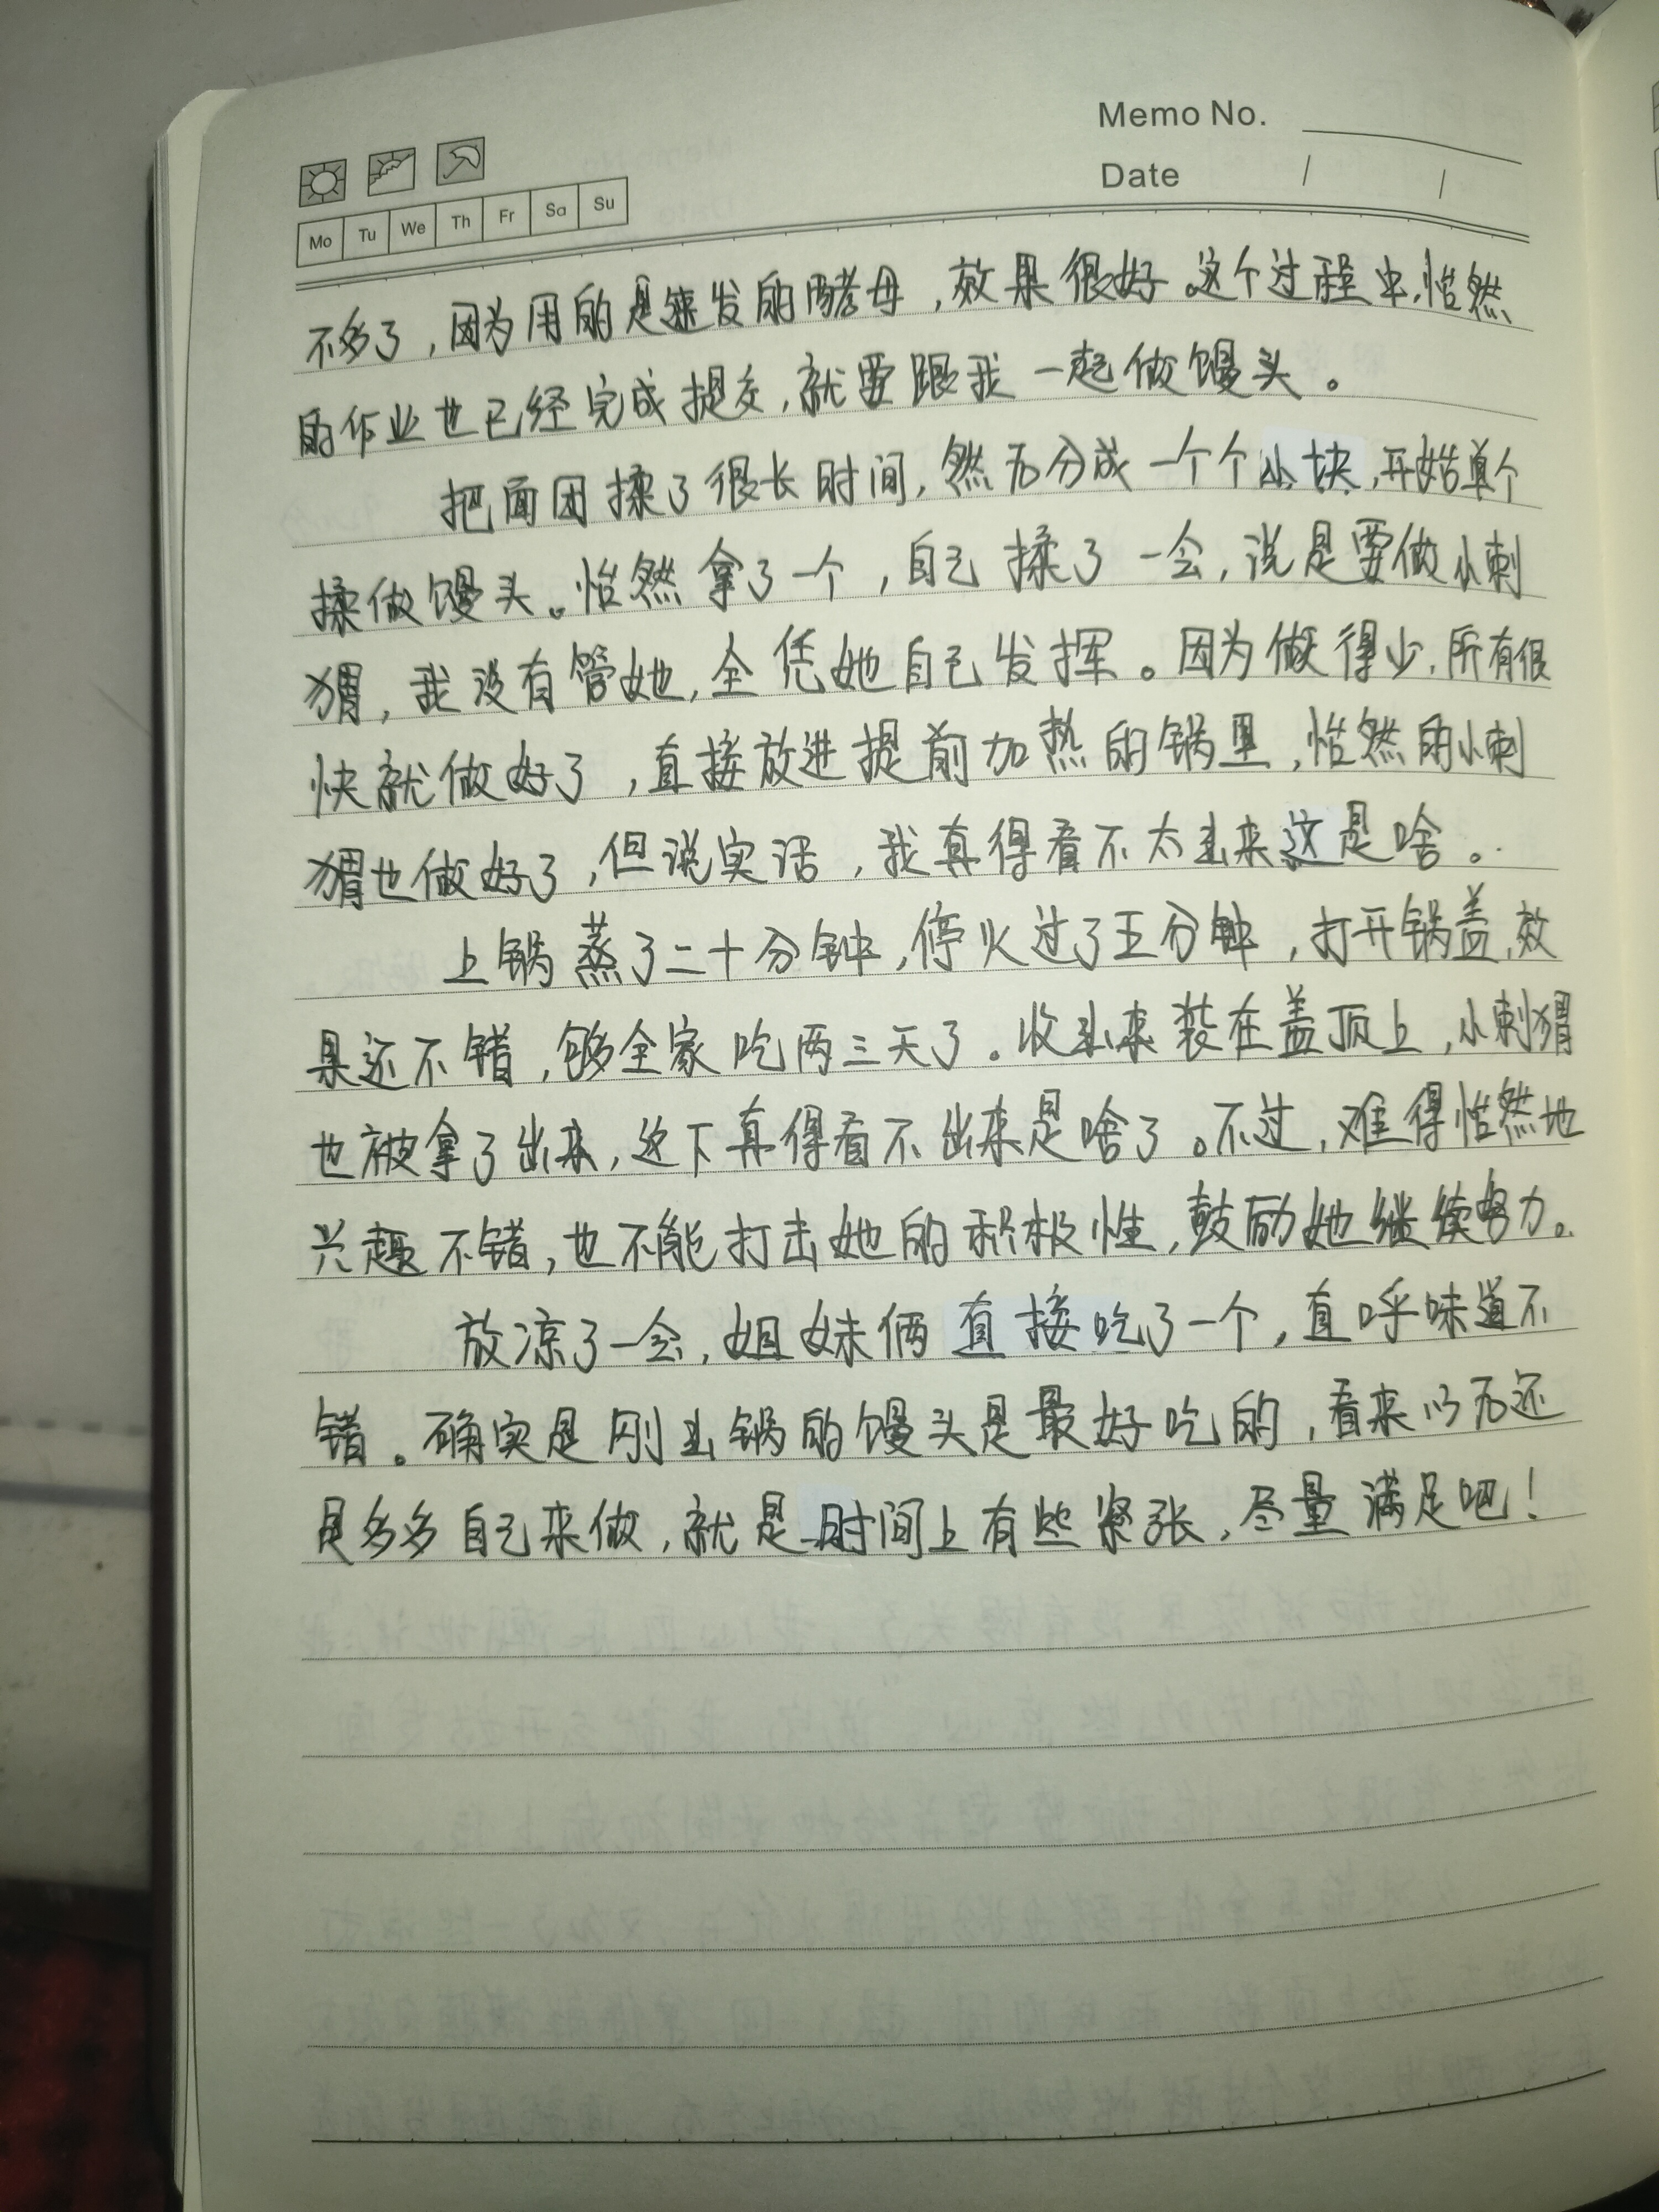 Memo No.
Date / /
Mo Tu We Th Fr Sa Su
不多了，因为用的是速发的酵母，效果很好。这个过程中，怡然
的作业也已经完成提交，就要跟我一起做馒头。
把面团揉了很长时间，然后分成一个个小块，开始单个
揉做馒头。怡然拿了一个，自己揉了一会，说是要做小刺
猬，我没有管她，全凭她自己发挥。因为做得少，所有很
快就做好了，直接放进提前加热的锅里，怡然的小刺
猬也做好了，但说实话，我真得看不太出来这是啥。
上锅蒸了二十分钟，停火过了五分钟，打开锅盖，效
果还不错，够全家吃两三天了。收出来装在盖顶上，小刺猬
也被拿了出来，这下真得看不出来是啥了。不过，难得怡然地
兴趣不错，也不能打击她的积极性，鼓励她继续努力。
放凉了一会，姐妹俩直接吃了一个，直呼味道不
错。确实是刚出锅的馒头是最好吃的，看来以后还
是多多自己来做，就是时间上有些紧张，尽量满足吧！